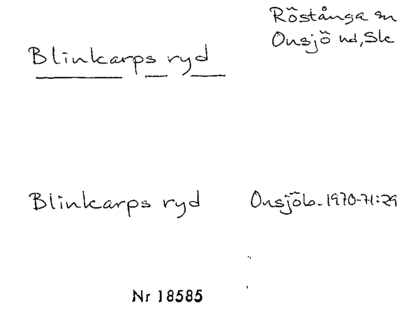 Röstånga sn
Blinkarps ryd
Onsjö hd, Sk
Blinkarps ryd Onsjöb. 1970-71:29
Nr 18585